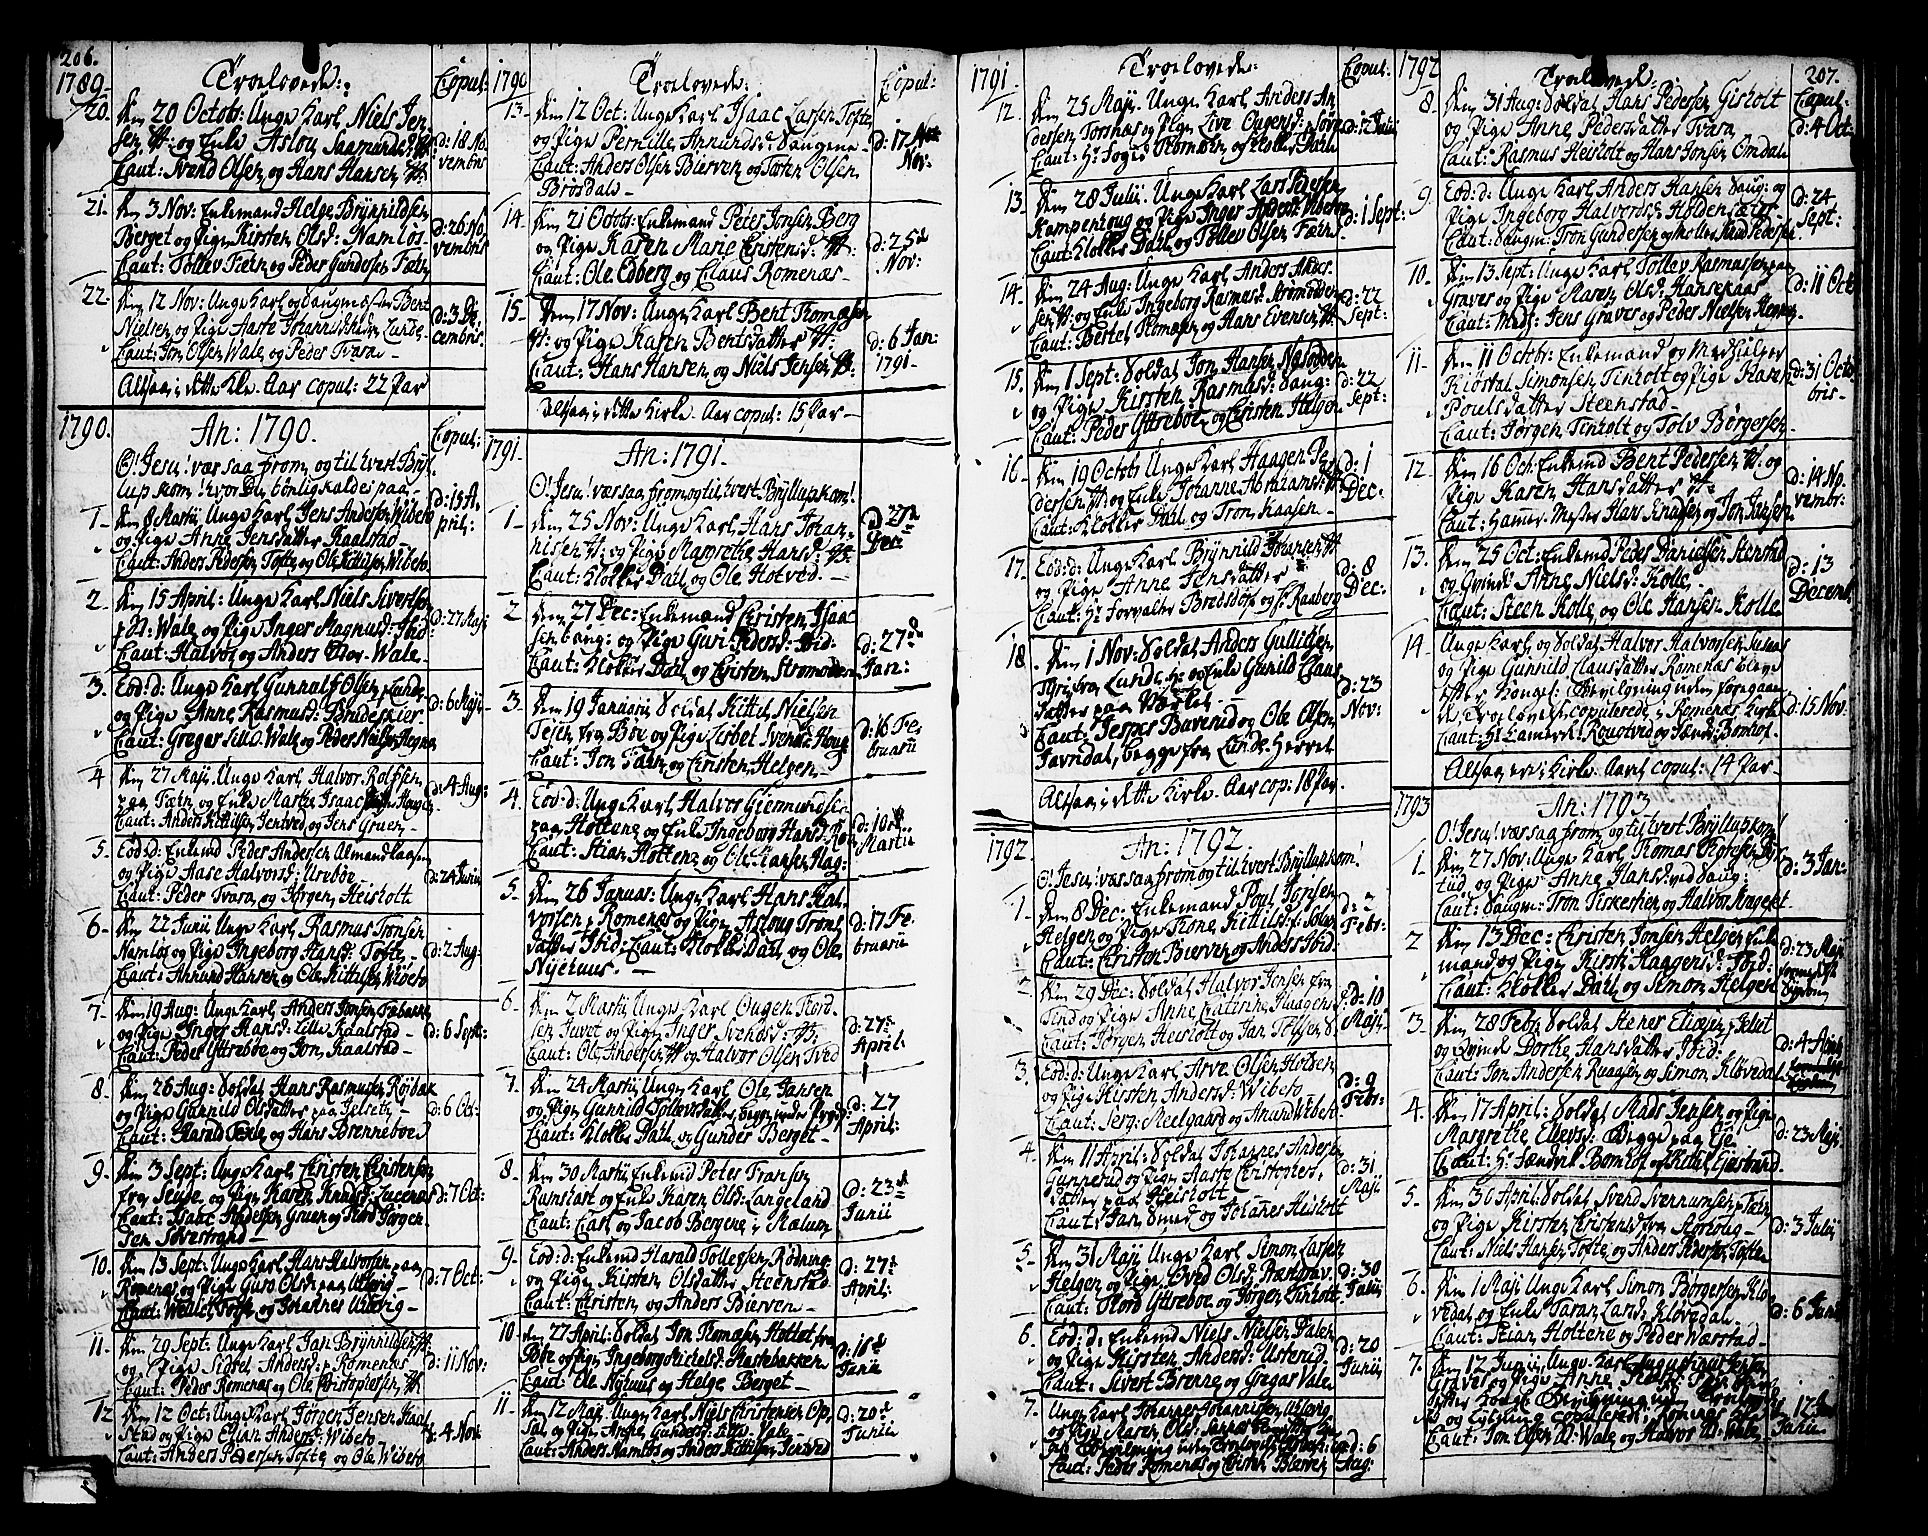 206.
1789.
Troelovede:
Copul:
20.
den 20 Octobr: Unge Karl Niels Jen-
sen H: og Enke Aslou Saamunds: H
Caut: Svend Olsen og Hans Hansen H:
d: 18 No-
vembris
21.
den 3 Nov: Enkemand Helge Brynnildsen
Berget og Pige Kirsten Olsd: Namløs
Caut: Tollev Fæen og Peder Gundersen Fæen
d: 26 No-
vembris
22.
den 12 Nov: Unge Karl og Saugmester Bent
Nielsen og Pige Aaste Johannisdatter Lunde
Caut: Jon Olsen Wale og Peder Tvara
d: 3 De-
cembris
Altsaa i dette Kle. Aar copul: 22 Par
1790.
An: 1790.
Copul:
O! Jesu! vær saa from, og til hvert Bryl-
lup kom! hvor Du bønlig kaldes paa
1.
den 8 Martii Unge Karl Jens Andersen Wibeto
og Pige Anne Jensdatter Kaalstad
Caut: Anders Pedersen Tofte og Ole Kittilsen Wibeto
d: 15 A-
pril:
2.
den 15 April: Unge Karl Niels Sivertsen
p N: Wale og Pige Inger Magnusd: Ibid:
Caut: Halvor og Anders Nor-Wale
d: 27 Maji
3.
Eod: d: Unge Karl Gunnulf Olsen Lunde
og Pige Anne Rasmusd: Brudeskier
Caut: Gregar Lille-Wale og Peder Nielsen Hegna
d: 6 Maji
4.
den 27 Maji Unge Karl Halvor Rolfsen
paa Fæen og Enke Marthe Isaac Haugen
Caut: Anders Kittilsen Jentved og Jens Gruen
d: 4 Aug:
5.
Eod: d: Enkemd Peder Andersen Almandaasen
og Pige Aase Halvorsd: Ureboe
Caut: Peder Tvara og Jørgen Heisholt
d: 24 Junii
6.
den 22 Junii Unge Karl Rasmus Tronsen
Namløs og Pige Ingeborg Hansd: Tofte
Caut: Annund Hansen og Ole Kittilsen Wibeto
d: 2 Aug:
7.
den 10 Aug: Unge Karl Anders Jonsen Fæbakke
og Pige Inger Hansd: Lille Kaalstad
Caut: Peder Yttreboe og Jon Kaalstad
d: 6 Sept:
8.
den 26 Aug: Soldat Hans Rasmusen Røibak
og Pige Gunnild Olsdatter paa Jelseth
Caut: Harald Texle og Hans Brenneboe
d: 6 Oct:
9.
den 3 Sept: Unge Karl Christen Christensen
fra Seuse og Pige Karen Knudsd: Lucenæs
Caut: Isaac Andersen Gruen og Thord Jørgen-
sen Søvestrand
d: 7 Oct:
10.
den 13 Sept: Unge Karl Hans Halvorsen paa
Romenæs og Pige Guro Olsd: paa Ulvorg
Caut: Wetle Tofte og Johannes Ulvorg
d: 7 Oct:
11.
den 29 Sept: Unge Karl Jan Brynnildsen H:
og Pige Sidsel Andersd: p Romenæs
Caut: Peder Romenæs og Ole Christophersen H:
d: 11 Nov:
12
den 12 Oct: Unge Karl Jørgen Jensen Kaal-
stad og Pige Elian Andersd: Wibeto
Caut: Anders Pedersen Tofte og Ole Wibeto
d: 4 Nov
1790
Troelovede
Copul:
13.
den 12 Oct: Unge Karl Isaac Larsen Tofte
og Pige Pernille Annundsd: Saugene
Caut: Anders Olsen Bierven og Toren Olsen
Brosdale
d: 17
Nov:
14.
den 21 Octobr: Enkemand Peter Jonsen Berg
og Pige Karen Marie Christensd: H:
Caut: Ole Edberg og Claus Romenæs
d: 25
Nov:
15.
den 17 Nov: Unge Karl Bent Thomæsen
H: og Pige Karen Bentsdatter H:
Caut: Hans Hansen og Niels Jensen H:
d: 6 Jan:
1791
Altsaa i dette Kirke. Aar copul: 15 Par
1791.
An: 1791.
O! Jesu! vær saa from og til hvert Bryllup kom!
1.
den 25 Nov: Unge Karl Hans Johan-
nisen H: og Pige Margrethe Hansd: H:
Caut: Klokker Dahl og Ole Hotved
D 27
Dec:
2
den 27 Dec: Enkemand Christen Isaac-
sen Saug: og Pige Guri Pedersd: Ibid:
Caut: Klokker Dahl og Christen Stromodden
d: 27de
Jan:
3.
den 19 Januarii Soldat Kittil Nielsen
Tejen fra Bøe og Pige Lisbet Svendsd: Houg
Caut: Jon Fæen og Christen Helgen
d: 16 Fe-
bruarii
4.
Eod: d: Unge Karl Halvor Giermundsen
paa Holtene og Enke Ingeborg Hansd:
Caut: Stian Holtene og Ole Hansen Klag:
d: 10
Martii
5.
den 26 Januar: Unge Karl Hans Hal-
vorsen p Romenæs og Pige Aslaug Trons-
datter Ibid: Caut: Klokker Dahl og Ole
Nyehuus.
d: 17 Fe-
bruarii
6.
den 2 Martii Unge Karl Ougen Thord-
sen Juvet og Pige Inger Svendsd: H:
Caut: Ole Andersen H og Halvor Olsen Tved
d: 27
April:
7.
den 24 Martii Unge Karl Ole Jansen
og Pige Gunnild Tollevsdatter, begge under Berget
Caut: Klokker Dahl og Gunder Berget
d: 27
April:
8.
den 30 Martii Enkemd Peter Fransen
Ramskast og Enke Karen Olsd: Langeland
Caut: Carl og Jacob Bergene i Mælum
d: 23
Junii
9.
Eod: d: Enkemd Harald Tollefsen Rødning
og Pige Kirsten Olsdatter Steenstad
Caut: Christen og Anders Bierven
d: 27
April:
10.
den 27 April: Soldat Jon Thomæsen Hottot fra
Bøe og Pige Ingeborg Michelsd: Mastebakken
Caut: Ole Nyhuus og Helge Berget
d: 16
Junii
11.
den 12 Maji Unge Karl Niels Christensen Op-
sal og Pige Anne Gundersd: Lille Vale
Caut: Anders Namløs og Anders Kittilsen Jentved
d: 20
Junii
1791
Troelovede:
Copul:
12
den 25 Maji. Unge Karl Anders An-
dersen Torsnæs og Pige Live Ougensd: p Søve
Caut: Hr Foged Abomæen og Klokker Dahl
d: 12 Julii
13.
den 28 Julii. Unge Karl Lars Pedersen
Kampenhoug og Pige Inger Andersd: Wibeto
Caut: Klokker Dahl og Tollev Olsen Fæen
d: 1 Sept:
14.
den 24 Aug: Unge Karl Anders Ander-
sen H: og Enke Ingeborg Rasmusd: Stromodden
Caut: Bertel Thomæsen og Hans Evensen H:
d: 22
Sept:
15.
den 1 Sept: Soldat Jon Hansen Næsodden
og Pige Kirsten Rasmusd: Saug:
Caut: Peder Yttreboe og Christen Helgen
d: 22
Sept:
16.
den 19 Octobr Unge Karl Haagen Pe-
dersen H: og Enke Johanne Abrahamsd: H:
Caut: Klokker Dahl og Tron Kaasen
d: 1
Dec:
17.
Eod: d: Unge Karl Brynnild Johansen H
og Pige Anne Jensdatter
Caut: Hr Forvalter Bredsdorf og Hr Raaberg
d: 8
Dec:
18.
den 1 Nov: Soldat Anders Gullichsen
Thyri fra Lunde H: og Enke Gunild Claus-
datter paa Værket
Caut: Jesper Baverud og Ole Olsen
Javndal, begge fra Lunde-Herret
d: 23
Nov:
Altsaa i dette Kirke. Aar cop: 18 Par.
1792
An: 1792.
O! Jesu! vær saa from og til hvert Bryllup kom!
1.
den 8 Dec: Enkemand Poul Jensen
Helgen og Pige Thone Kittilsd: p Solum
Caut: Christen Bierven og Anders Ibid
d: 2
Febr:
2.
den 29 Dec: Soldat Halvor Jensen fra
Tind og Pige Anne Catrine Haagens
Caut: Jørgen Heisholt og Jan Tollefsen S
d: 10
Maji
3.
Eod: d: Unge Karl Arve Olsen Holtsen
og Pige Kirsten Andersd: Wibeto
Caut: Serg: Meelgaard og Anund Wibeto
d: 9
Febr:
4.
den 11 April: Soldat Johannes Andersen
Gunnerud og Pige Aaste Christophers-
datter paa Heisholt
Caut: Jan Smed og Johannes Heisholt
d: 31
Maji
5.
den 31 Maji Unge Karl Simon Larsen
Helgen og Pige Øvid Olsd: Præstgrav
Caut: Thord Yttreboe og Jørgen Tinholt
d: 30
Junii
6.
Eod: d: Enkemd Niels Nielsen Dalen
og Pige Kirsten Andersd: Usterud
Caut: Sivert Brenne og Gregar Vale
d: 20
Junii
7.
Unge Karl Johannes Johannisen Ulvorg
og Pige Maren Olsd:
Caut: Peder Romenæs og Christen Bierven
d: 6
Aug:
1792
Troelovede:
207.
Copul:
8.
den 31 Aug: Soldat Hans Pedersen Gisholt
og Pige Anne Pedersdatter Tvara
Caut: Rasmus Heisholt og Hans Jonsen Omdal
d: 4 Oct:
9.
Eod: d: Unge Karl Anders Hansen Saug: og
Pige Ingeborg Halvorsd: Holden Sæter
Caut: Saugm: Tron Gundersen og Møller Knud Pedersen
d: 24
Sept:
10.
den 13 Sept: Unge Karl Tollev Rasmussen paa
Graver og Pige Maren Olsd: Hansekaas
Caut: Medhj: Jens Graver og Peder Nielsen Romen
d: 11 Oct
11.
den 11 Octobr: Enkemand og Medhielper
Kiøstal Simonsen Tinholt og Pige Karen
Poulsdatter Steenstad
Caut: Jørgen Tinholt og Tolv Børgersen
d: 31 Octo-
bris
12.
den 16 Oct: Enkemd Bent Pedersen H: og
Pige Karen Hansdatter H:
Caut: Hammer-Mester Hans Knudsen og Jon Jensen
d: 14 No-
vembr:
13.
den 25 Oct: Enkemd Peder Danielsen Stenstad
og Qvinde Anne Nielsd: Kolle
Caut: Steen Kolle og Ole Hansen Kolle
d: 13
Decemb
14.
Unge Karl og Soldat Halvor Halvorsen
og Pige Gunnild Clausdatter Romenæs bleve
efter Kongel: Bevilgning uden foregaaen-
de Troelovelse copulerede i Romenæs Kirke
Caut: Hr Lamerk Rougtved og Fænd: Bomhof
d: 15 Nov:
Altsaa er i Kirke-Aaret copul: 14 Par
1793
An: 1793
O! Jesu! vær saa from og til hvert Bryllup kom!
1.
den 27 Nov: Unge Karl Thomas Thoresen
tud og Pige Anne Hansd: ved Saug:
Caut: Saugm: Tron Fiskersten og Halvor Ringeset
d: 3 Jan:
2
den 13 Dec: Christen Jonsen Helgen Enke-
mand og Pige Kirsti Haagensd: Ibid:
Caut: Klokker Dahl og Simon Helgen
d: 23 Maji
3.
den 28 Febr: Soldat Stener Eliæsen Jelset
og Qvinde Dorthe Hansdatter Ibid:
Caut: Jon Andersen Kaasen og Simon Kløvedal
d: 4
4.
den 17 April: Soldat Mads Jensen og Pige
Margrethe Ellevsd: Begge paa Eje
Caut: Hr Fændrik Bomhof og Kittil Giestrud
d: 23 Maji
5.
den 30 April: Soldat Svend Svennumsen Fæen
og Pige Kirsten Christensd: fra Aarolig
Caut: Niels Hansen Tofte og Anders Pedersen Tofte
d: 3 Julii
6.
den 1 Maji Unge Karl Simon Børgersen Klø-
vedal og Enke Saran Larsd: Kløvedal
Caut: Stian Holtene og Peder Wærstad
d: 6 Junii
7.
den 12 Junii Unge Karl Augustinus Jensen
Graver og Pige Anne
efter Kongl: Bevilgning uden Troelovelse
og Lysning copulered i Romenæs Kirke
Caut: Jon Olsen N: Wale og Halvor N: Wale
d: 12
Junii